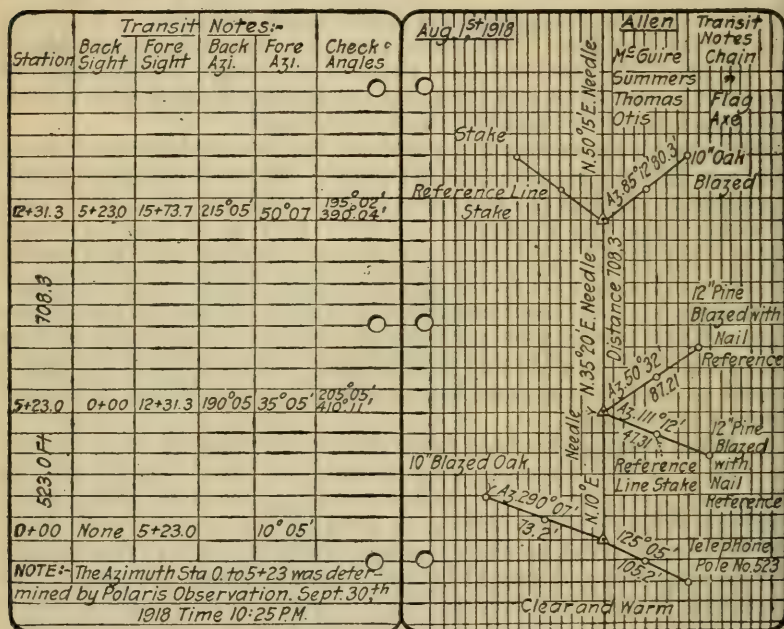 Transit Notes:-
Station Back Sight Fore Sight Back Azi. Fore Azi. Check Angles
12+31.3 5+23.0 15+73.7 215°05' 50°07 195°02' 390°04'
708.3
5+23.0 0+00 12+31.3 190°05 35°05' 205°05' 410°11'
523.0 Ft
0+00 None 5+23.0 10°05'
NOTE:- The Azimuth Sta 0. to 5+23 was deter-
mined by Polaris Observation. Sept. 30,th
1918 Time 10:25 P.M.
Aug. 1st 1918
Allen Transit Notes
McGuire Chain
Summers "
Thomas Flag
Otis Axe
N.50°15'E. Needle
Stake
Az.85°12' 80.3'
10" Oak
Blazed
Reference Line
Stake
N.35°20'E. Needle
Distance 708.3
12" Pine
Blazed with
Nail
Reference
Az.50°32'
87.21'
Az.111°12'
41.31
12" Pine
Blazed
with
Nail
Reference
Reference
Line Stake
N.10°E Needle
10" Blazed Oak
Az.290°07'
73.2'
125°05'
105.2'
Telephone
Pole No.523
Clear and Warm